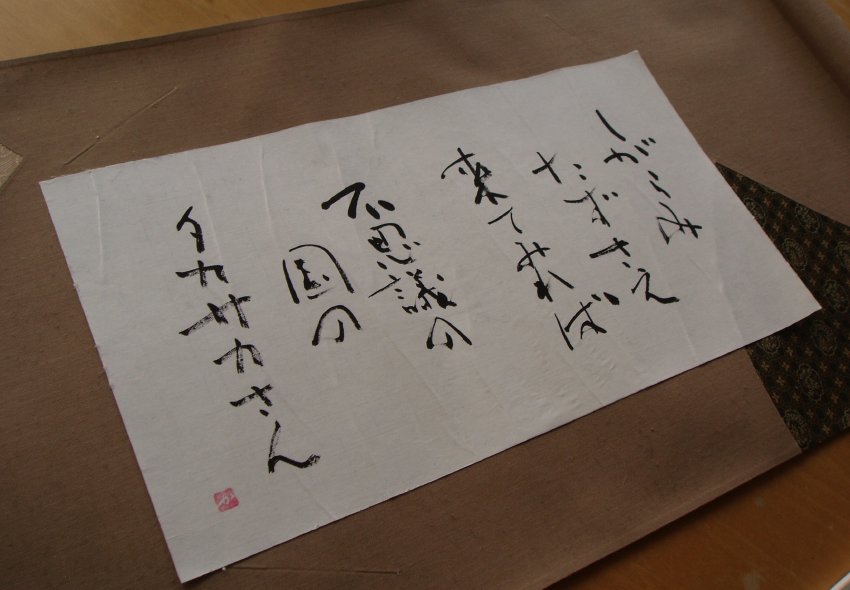 しがらみ
たずさえ
来て来れば
不思議の
国の
タカサカさん
か